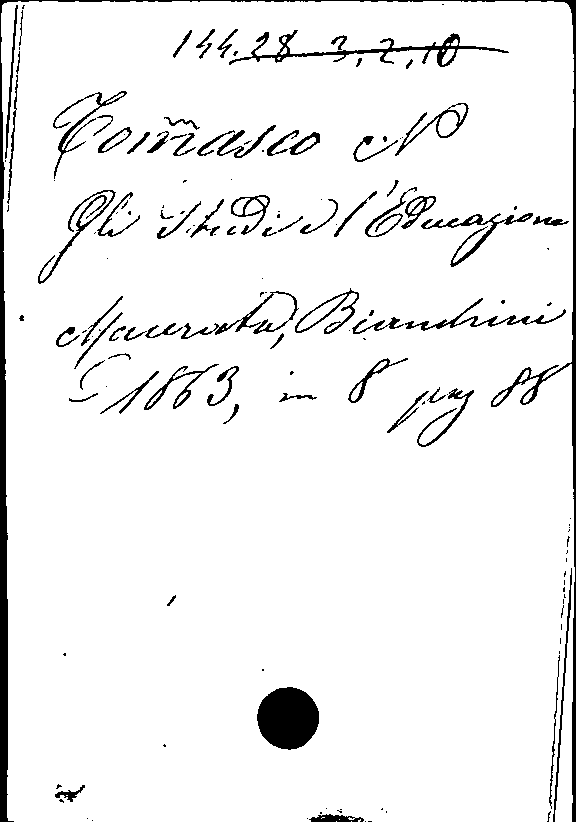 144.28 3, 2, 10
Tom̃asco N
Gli Studi e l'Educazione
Macerata, Bianchini
1863, in 8 pag 88